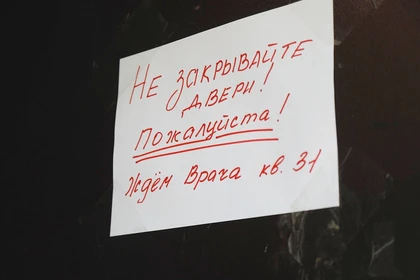 Не закрывайте
двери!
Пожалуйста!
Ждём Врача кв. 31